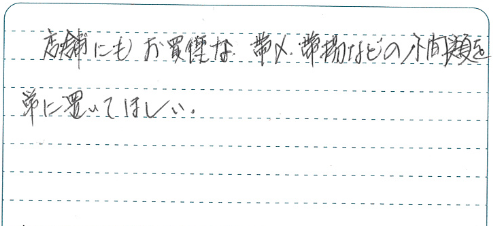 店舗にもお買得な帯〆.帯揚などの小間物類を
常に置いてほしい.